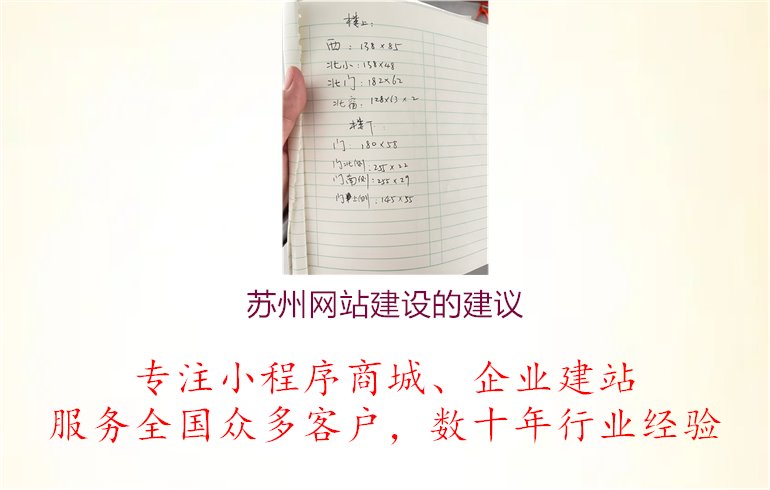 楼上：
西：138×85
北小：138×48
北门：182×62
北窗：128×63×2
楼下：
门：180×58
门北侧：255×22
门南侧：255×29
门上侧：145×55
苏州网站建设的建议
专注小程序商城、企业建站
服务全国众多客户，数十年行业经验